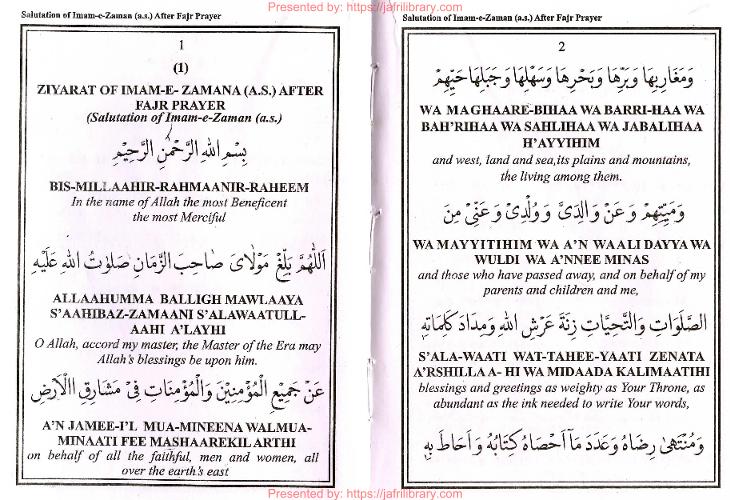 Presented by: https://jafrilibrary.com
Salutation of Imam-e-Zaman (a.s.) After Fajr Prayer
1
(1)
ZIYARAT OF IMAM-E- ZAMANA (A.S.) AFTER
FAJR PRAYER
(Salutation of Imam-e-Zaman (a.s.)
بِسْمِ اللهِ الرَّحْمٰنِ الرَّحِيْمِ
BIS-MILLAAHIR-RAHMAANIR-RAHEEM
In the name of Allah the most Beneficent
the most Merciful
اَللّٰهُمَّ بَلِّغْ مَوْلَاىَ صَاحِبَ الزَّمَانِ صَلَوٰتُ اللهِ عَلَيْهِ
ALLAAHUMMA BALLIGH MAWLAAYA
S'AAHIBAZ-ZAMAANI S'ALAWAATULL-
AAHI A'LAYHI
O Allah, accord my master, the Master of the Era may
Allah's blessings be upon him.
عَنْ جَمِيْعِ الْمُؤْمِنِيْنَ وَالْمُؤْمِنَاتِ فِىْ مَشَارِقِ الْاَرْضِ
A'N JAMEE-I'L MUA-MINEENA WALMUA-
MINAATI FEE MASHAAREKIL ARTHI
on behalf of all the faithful, men and women, all
over the earth's east
Salutation of Imam-e-Zaman (a.s.) After Fajr Prayer
2
وَمَغَارِبِهَا وَبَرِّهَا وَبَحْرِهَا وَسَهْلِهَا وَجَبَلِهَا حَيِّهِمْ
WA MAGHAARE-BIHAA WA BARRI-HAA WA
BAH'RIHAA WA SAHLIHAA WA JABALIHAA
H'AYYIHIM
and west, land and sea,its plains and mountains,
the living among them.
وَمَيِّتِهِمْ وَعَنْ وَالِدَىَّ وَوُلْدِىْ وَعَنِّىْ مِنَ
WA MAYYITIHIM WA A'N WAALI DAYYA WA
WULDI WA A'NNEE MINAS
and those who have passed away, and on behalf of my
parents and children and me,
الصَّلَوَاتِ وَالتَّحِيَّاتِ زِنَةَ عَرْشِ اللهِ وَمِدَادَ كَلِمَاتِهٖ
S'ALA-WAATI WAT-TAHEE-YAATI ZENATA
A'RSHILLA A- HI WA MIDAADA KALIMAATIHI
blessings and greetings as weighty as Your Throne, as
abundant as the ink needed to write Your words,
وَمُنْتَهٰى رِضَاهُ وَعَدَدَ مَا اَحْصَاهُ كِتَابُهٗ وَاَحَاطَ بِهٖ
Presented by: https://jafrilibrary.com